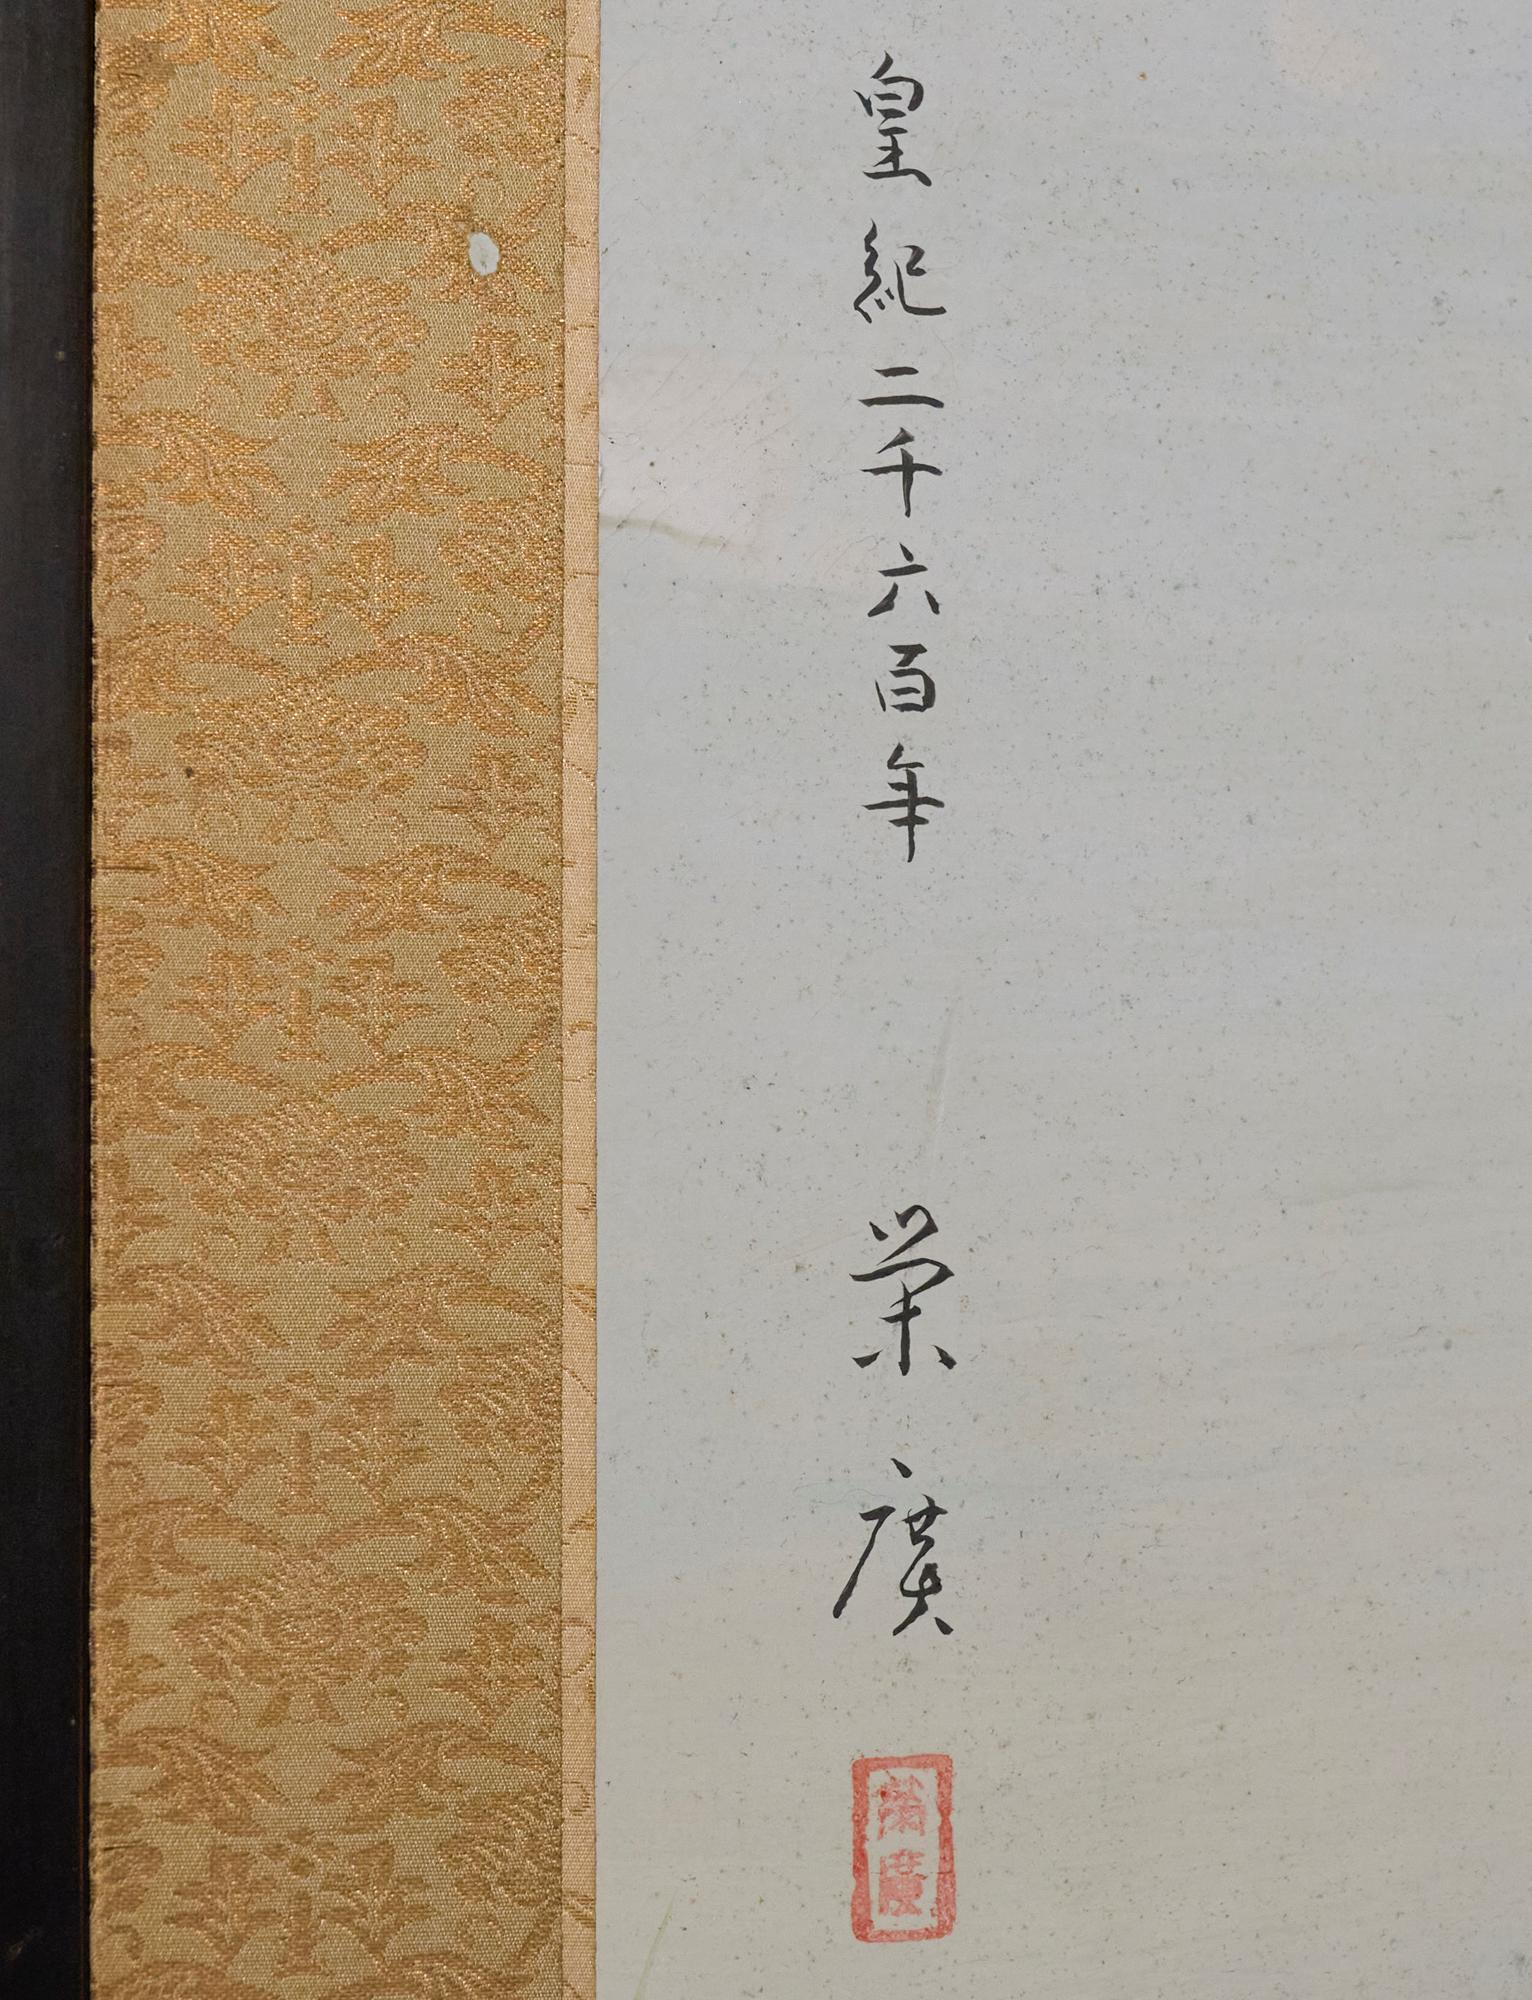 皇紀二千六百年 榮廣
榮廣